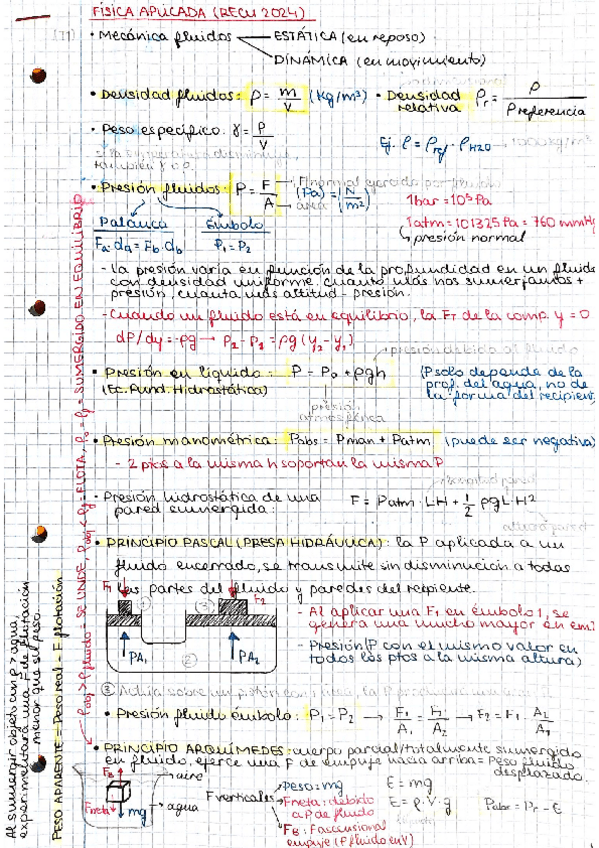 FÍSICA APLICADA (RECU 2024)
(T1) • Mecánica fluidos
ESTÁTICA (en reposo)
DINÁMICA (en movimiento)
• Densidad fluidos: ρ = m/V (kg/m³) • Densidad relativa ρr = ρ/ρreferencia
• Peso específico. γ = P/V
Ej. ρ = ρrel · ρH2O → 1000 kg/m³
también γ = 0.
• Presión fluidos: P = F/A
F normal ejercida por fluido
área
(Pa) = (N/m²)
1bar = 10⁵ Pa
1atm = 101325 Pa = 760 mmHg
↳ presión normal
Palanca
Émbolo
Fa·da = Fb·db
P1 = P2
- La presión varía en función de la profundidad en un fluido
con densidad uniforme. Cuanto más nos sumerjamos +
presión, cuanta más altitud - presión.
- Cuando un fluido está en equilibrio, la FT de la comp. y = 0
dP/dy = -ρg → P2 - P1 = ρg (y2 - y1)
presión debida al fluido
• Presión en líquido: P = P0 + ρgh (P solo depende de la
(Ec. Fund. Hidrostática) prof. del agua, no de
la forma del recipient
presión
atmosférica
• Presión manométrica: Pabs = Pman + Patm (puede ser negativa)
- 2 ptos a la misma h soportan la misma P
• Presión hidrostática de una
pared sumergida:
F = Patm · LH + 1/2 ρgLH²
altura pared
• PRINCIPIO PASCAL (PRESA HIDRÁULICA): la P aplicada a un
fluido encerrado, se transmite sin disminución a todas
las partes del fluido y paredes del recipiente.
F1 ① ③ F2
PA1 PA2
②
- Al aplicar una F1 en émbolo 1, se
genera una mucho mayor en em.2
- Presión (P con el mismo valor en
todos los ptos a la misma altura)
③ Actúa sobre un pistón con
• Presión fluido émbolo: P1 = P2 → F1/A1 = F2/A2 → F2 = F1 · A2/A1
• PRINCIPIO ARQUÍMEDES: cuerpo parcial/totalmente sumergido
en fluido, ejerce una F de empuje hacia arriba = Peso fluido
desplazado.
FB
aire
agua
Fneta
mg
F verticales
Peso: mg
Fneta: debido
a P de fluido
FB: F ascensional
empuje (P fluido en V)
E = mg
E = ρ·V·g
ρobj > ρfluido = SE UNDE, ρobj < ρf = FLOTA, ρo = ρf = SUMERGIDO EN EQUILIBRIO
Al sumergir objeto con ρ > agua,
experimentará una F de flotación
menor que su peso.
PESO APARENTE = Peso real - F flotación